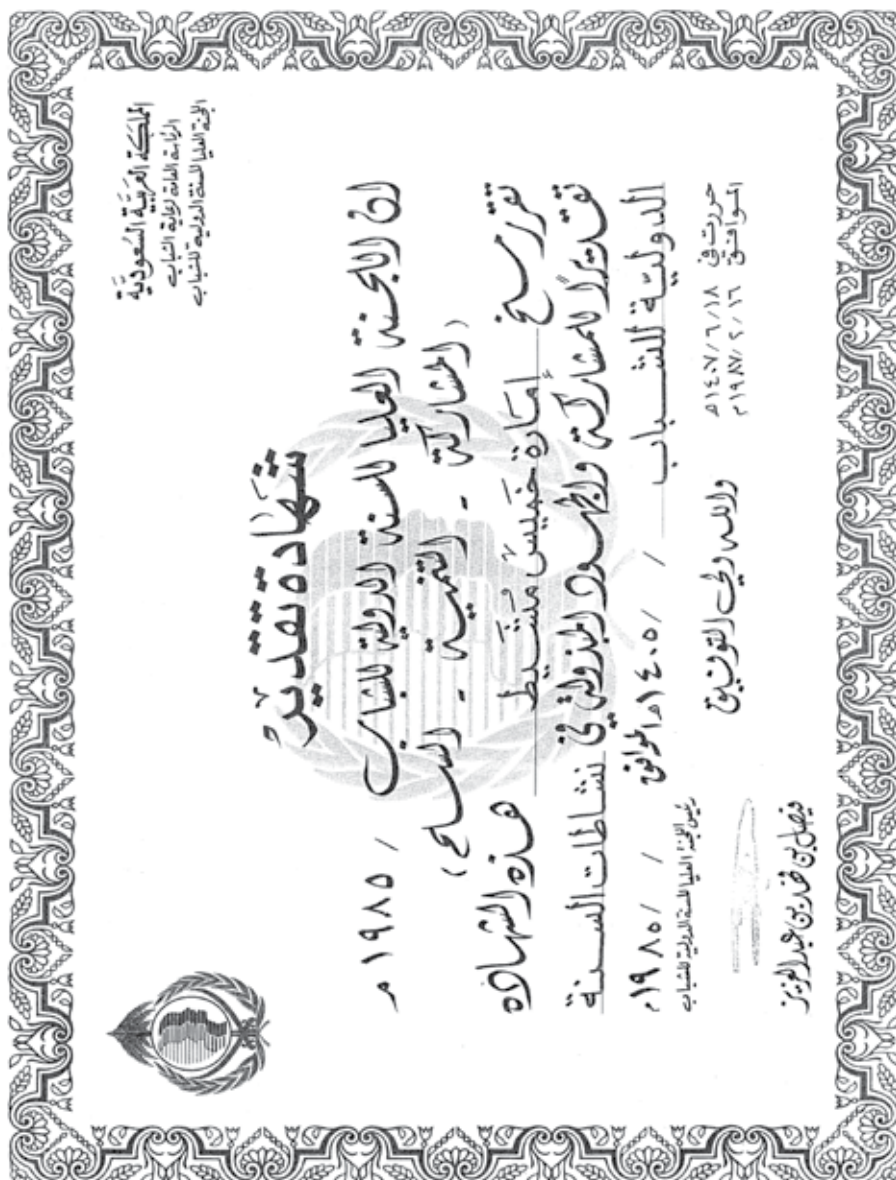 المملكة العربية السعودية
الرئاسة العامة لرعاية الشباب
اللجنة العليا للسنة الدولية للشباب
شهادة تقدير
ان اللجنة العليا للسنة الدولية للشباب / ١٩٨٥ م
( المشاركة - التنمية - السلام )
تقرر منح امارة خميس مشيط هذه الشهادة
تقديراً للمشاركة والجهود المبذولة في نشاطات السنة
الدولية للشباب / / ١٤٠٥ هـ الموافق / / ١٩٨٥ م
حررت في ١٤٠٧/٦/١٨ هـ
الموافق ١٩٨٧/٢/١٦ م
والله ولي التوفيق
رئيس اللجنة العليا للسنة الدولية للشباب
فيصل بن فهد بن عبد العزيز